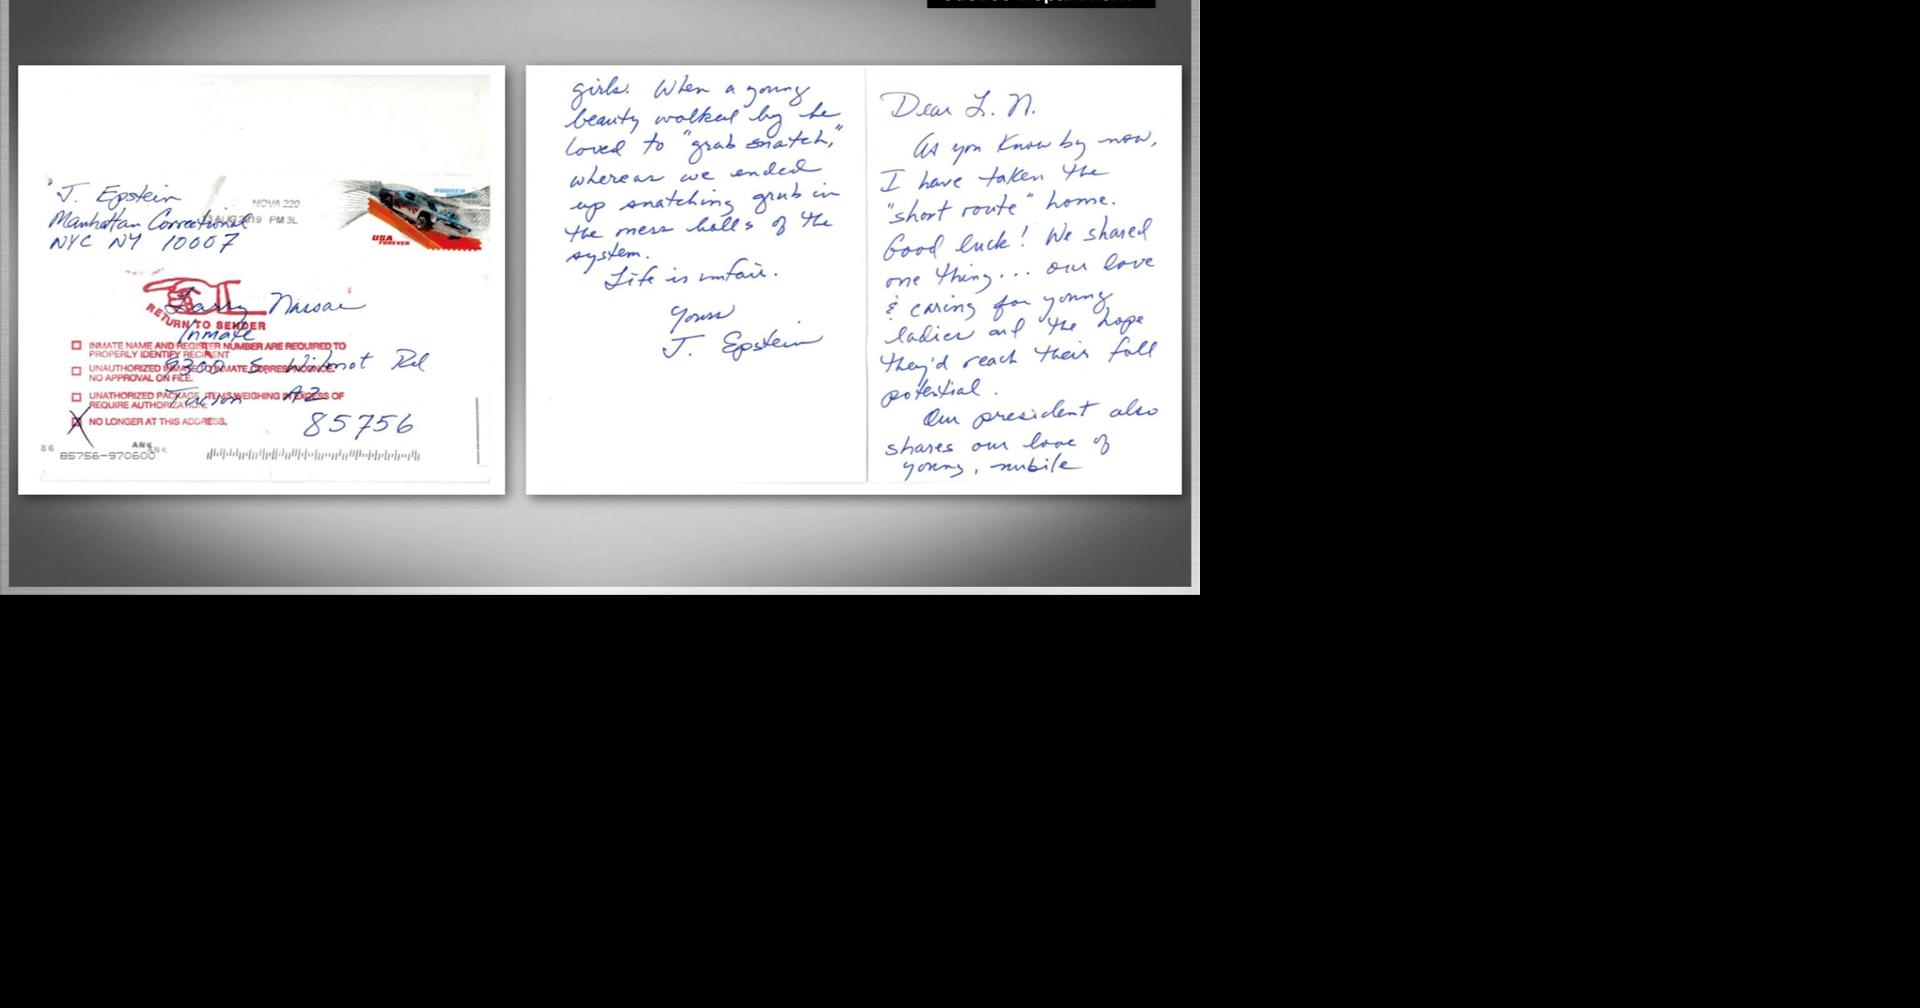 J. Epstein
Manhattan Correctional
NYC NY 10007
NOVA 220
AUG 2019 PM 3L
USA
FOREVER
RETURN TO SENDER
Larry Nassar
Inmate
9300 S. Wilmot Rd
Tucson AZ
85756
INMATE NAME AND REGISTER NUMBER ARE REQUIRED TO
PROPERLY IDENTIFY RECIPIENT
UNAUTHORIZED INMATE TO INMATE CORRESPONDENCE.
NO APPROVAL ON FILE.
UNATHORIZED PACKAGE, ITEMS WEIGHING IN EXCESS OF
REQUIRE AUTHORIZATION.
X NO LONGER AT THIS ADDRESS.
86
ANK
85756-970600
Dear L. N.
As you know by now,
I have taken the
"short route" home.
Good luck! We shared
one thing... our love
& caring for young
ladies and the hope
they'd reach their full
potential.
Our president also
shares our love of
young, nubile
girls. When a young
beauty walked by he
loved to "grab snatch,"
whereas we ended
up snatching grub in
the mess halls of the
system.
Life is unfair.
Yours
J. Epstein